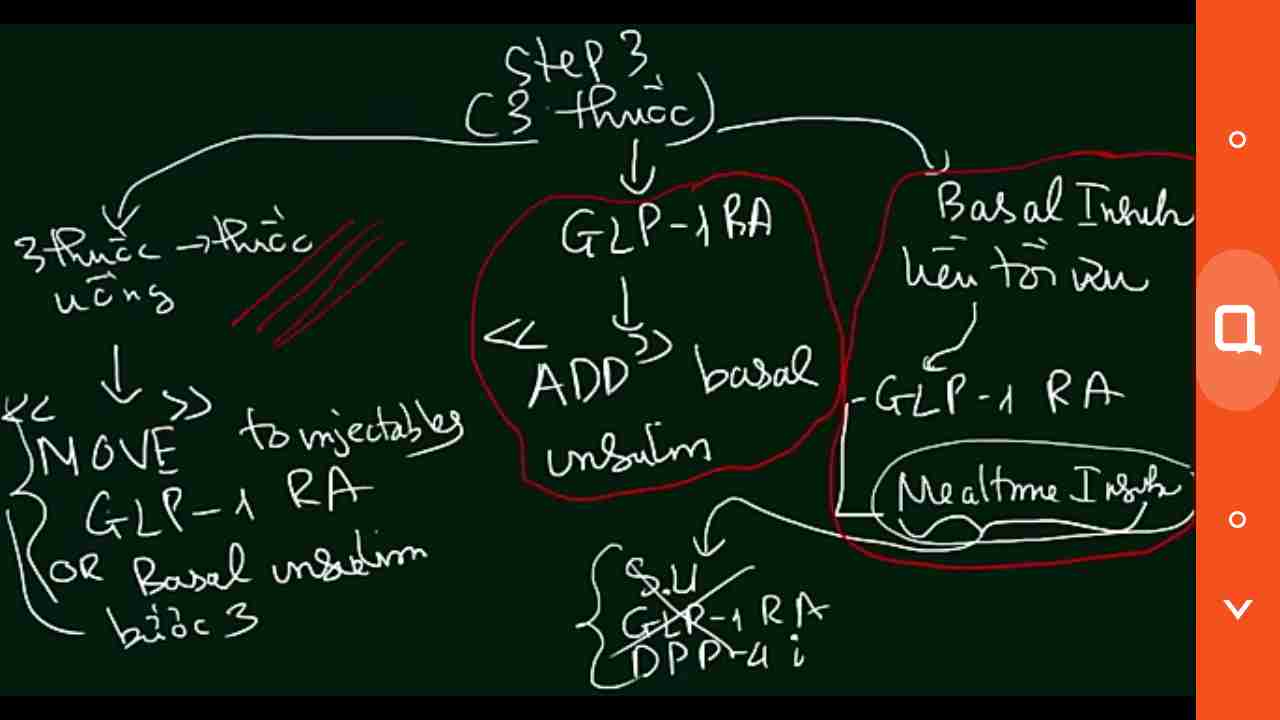 Step 3
(3 thuốc)
3 thuốc → thuốc
uống
« MOVE » to injectables
GLP-1 RA
OR Basal insulin
bước 3
GLP-1 RA
« ADD » basal
insulin
Basal Insulin
liều tối ưu
- GLP-1 RA
Mealtime Insulin
S.U
GLP-1 RA
DPP-4 i